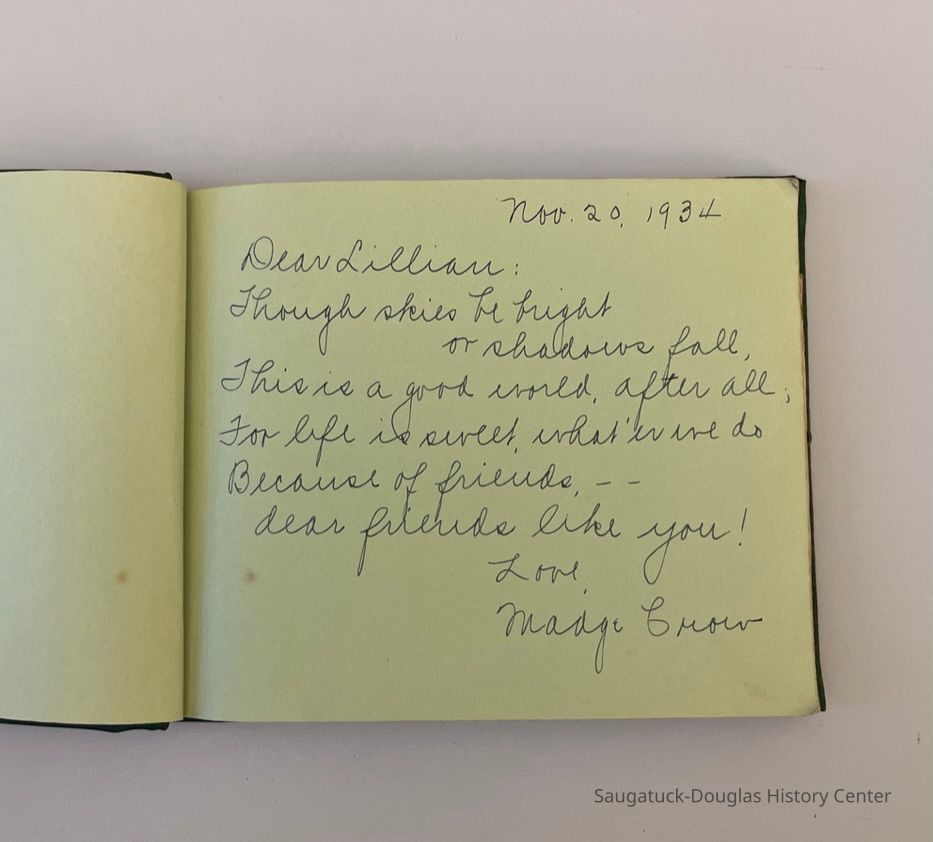 Nov. 20, 1934
Dear Lillian:
Though skies be bright
or shadows fall,
This is a good world, after all;
For life is sweet, what'er we do
Because of friends, --
dear friends like you!
Love,
Madge Crow
Saugatuck-Douglas History Center